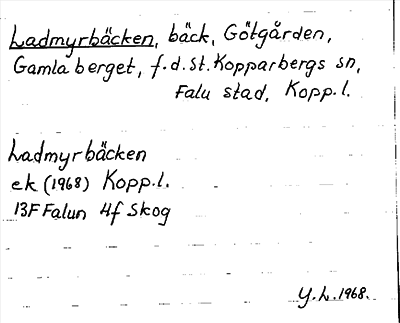 Ladmyrbäcken, bäck, Götgården,
Gamla berget, f.d. St. Kopparbergs sn,
Falu stad, Kopp.l.
Ladmyrbäcken
ek (1968) Kopp.l.
13F Falun 4f Skog
Y.L. 1968.